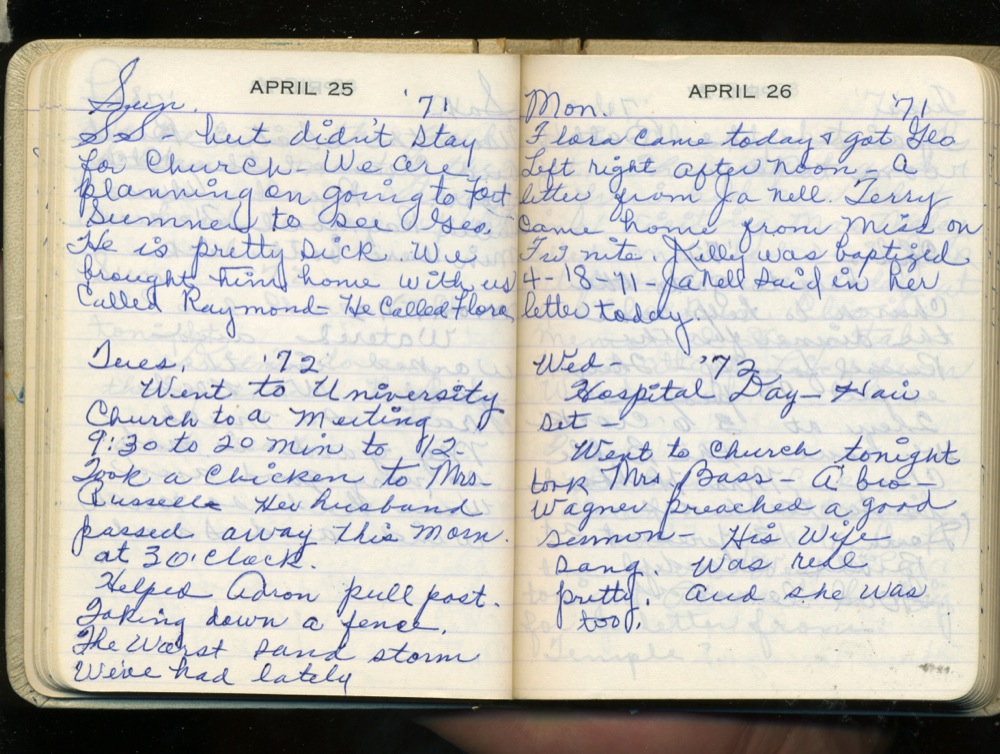 APRIL 25
Sun. '71
SS - but didn't stay
for Church - We are
planning on going to Fort
Sumner to see Geo.
He is pretty sick. We
brought him home with us
Called Raymond - He Called Flora
Tues. '72
Went to University
Church to a Meeting
9:30 to 20 min to 12.
Took a chicken to Mrs.
Russell Her husband
passed away this Morn.
at 3 O'clock.
Helped Adron pull post.
Taking down a fence.
The Worst sand storm
We've had lately
APRIL 26
Mon. '71
Flora came today & got Geo
Left right after noon - a
letter from Ja Nell. Terry
came home from Miss on
Fri nite. Killy was baptized
4-18-71 - Ja Nell said in her
letter today.
Wed - '72
Hospital Day - Hair
set -
Went to Church tonight
took Mrs Bass - A bro -
Wagner preached a good
sermon - His Wife
sang. Was real
pretty. and she was
too.